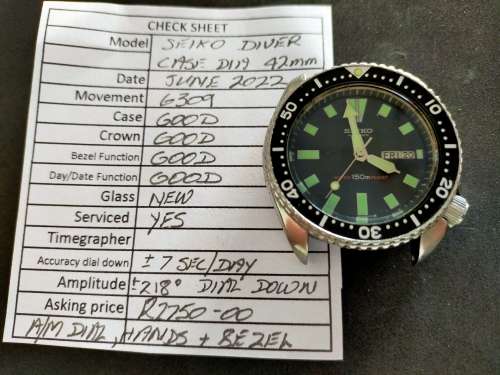 CHECK SHEET
Model SEIKO DIVER
CASE DIA 42mm
Date JUNE 2022
Movement 6309
Case GOOD
Crown GOOD
Bezel Function GOOD
Day/Date Function GOOD
Glass NEW
Serviced YES
Timegrapher
Accuracy dial down ± 7 SEC/DAY
Amplitude ± 218° DIAL DOWN
Asking price R2750-00
A/M DIAL, HANDS + BEZEL
10
20
30
40
50
SEIKO
FRI 20
150m